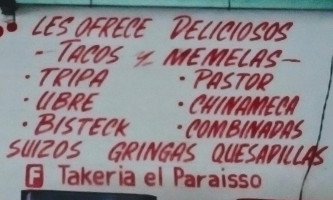 LES OFRECE DELICIOSOS
- TACOS Y MEMELAS -
· TRIPA · PASTOR
· UBRE · CHINAMECA
· BISTECK · COMBINADAS
SUIZOS GRINGAS QUESADILLAS
f Takeria el Paraisso